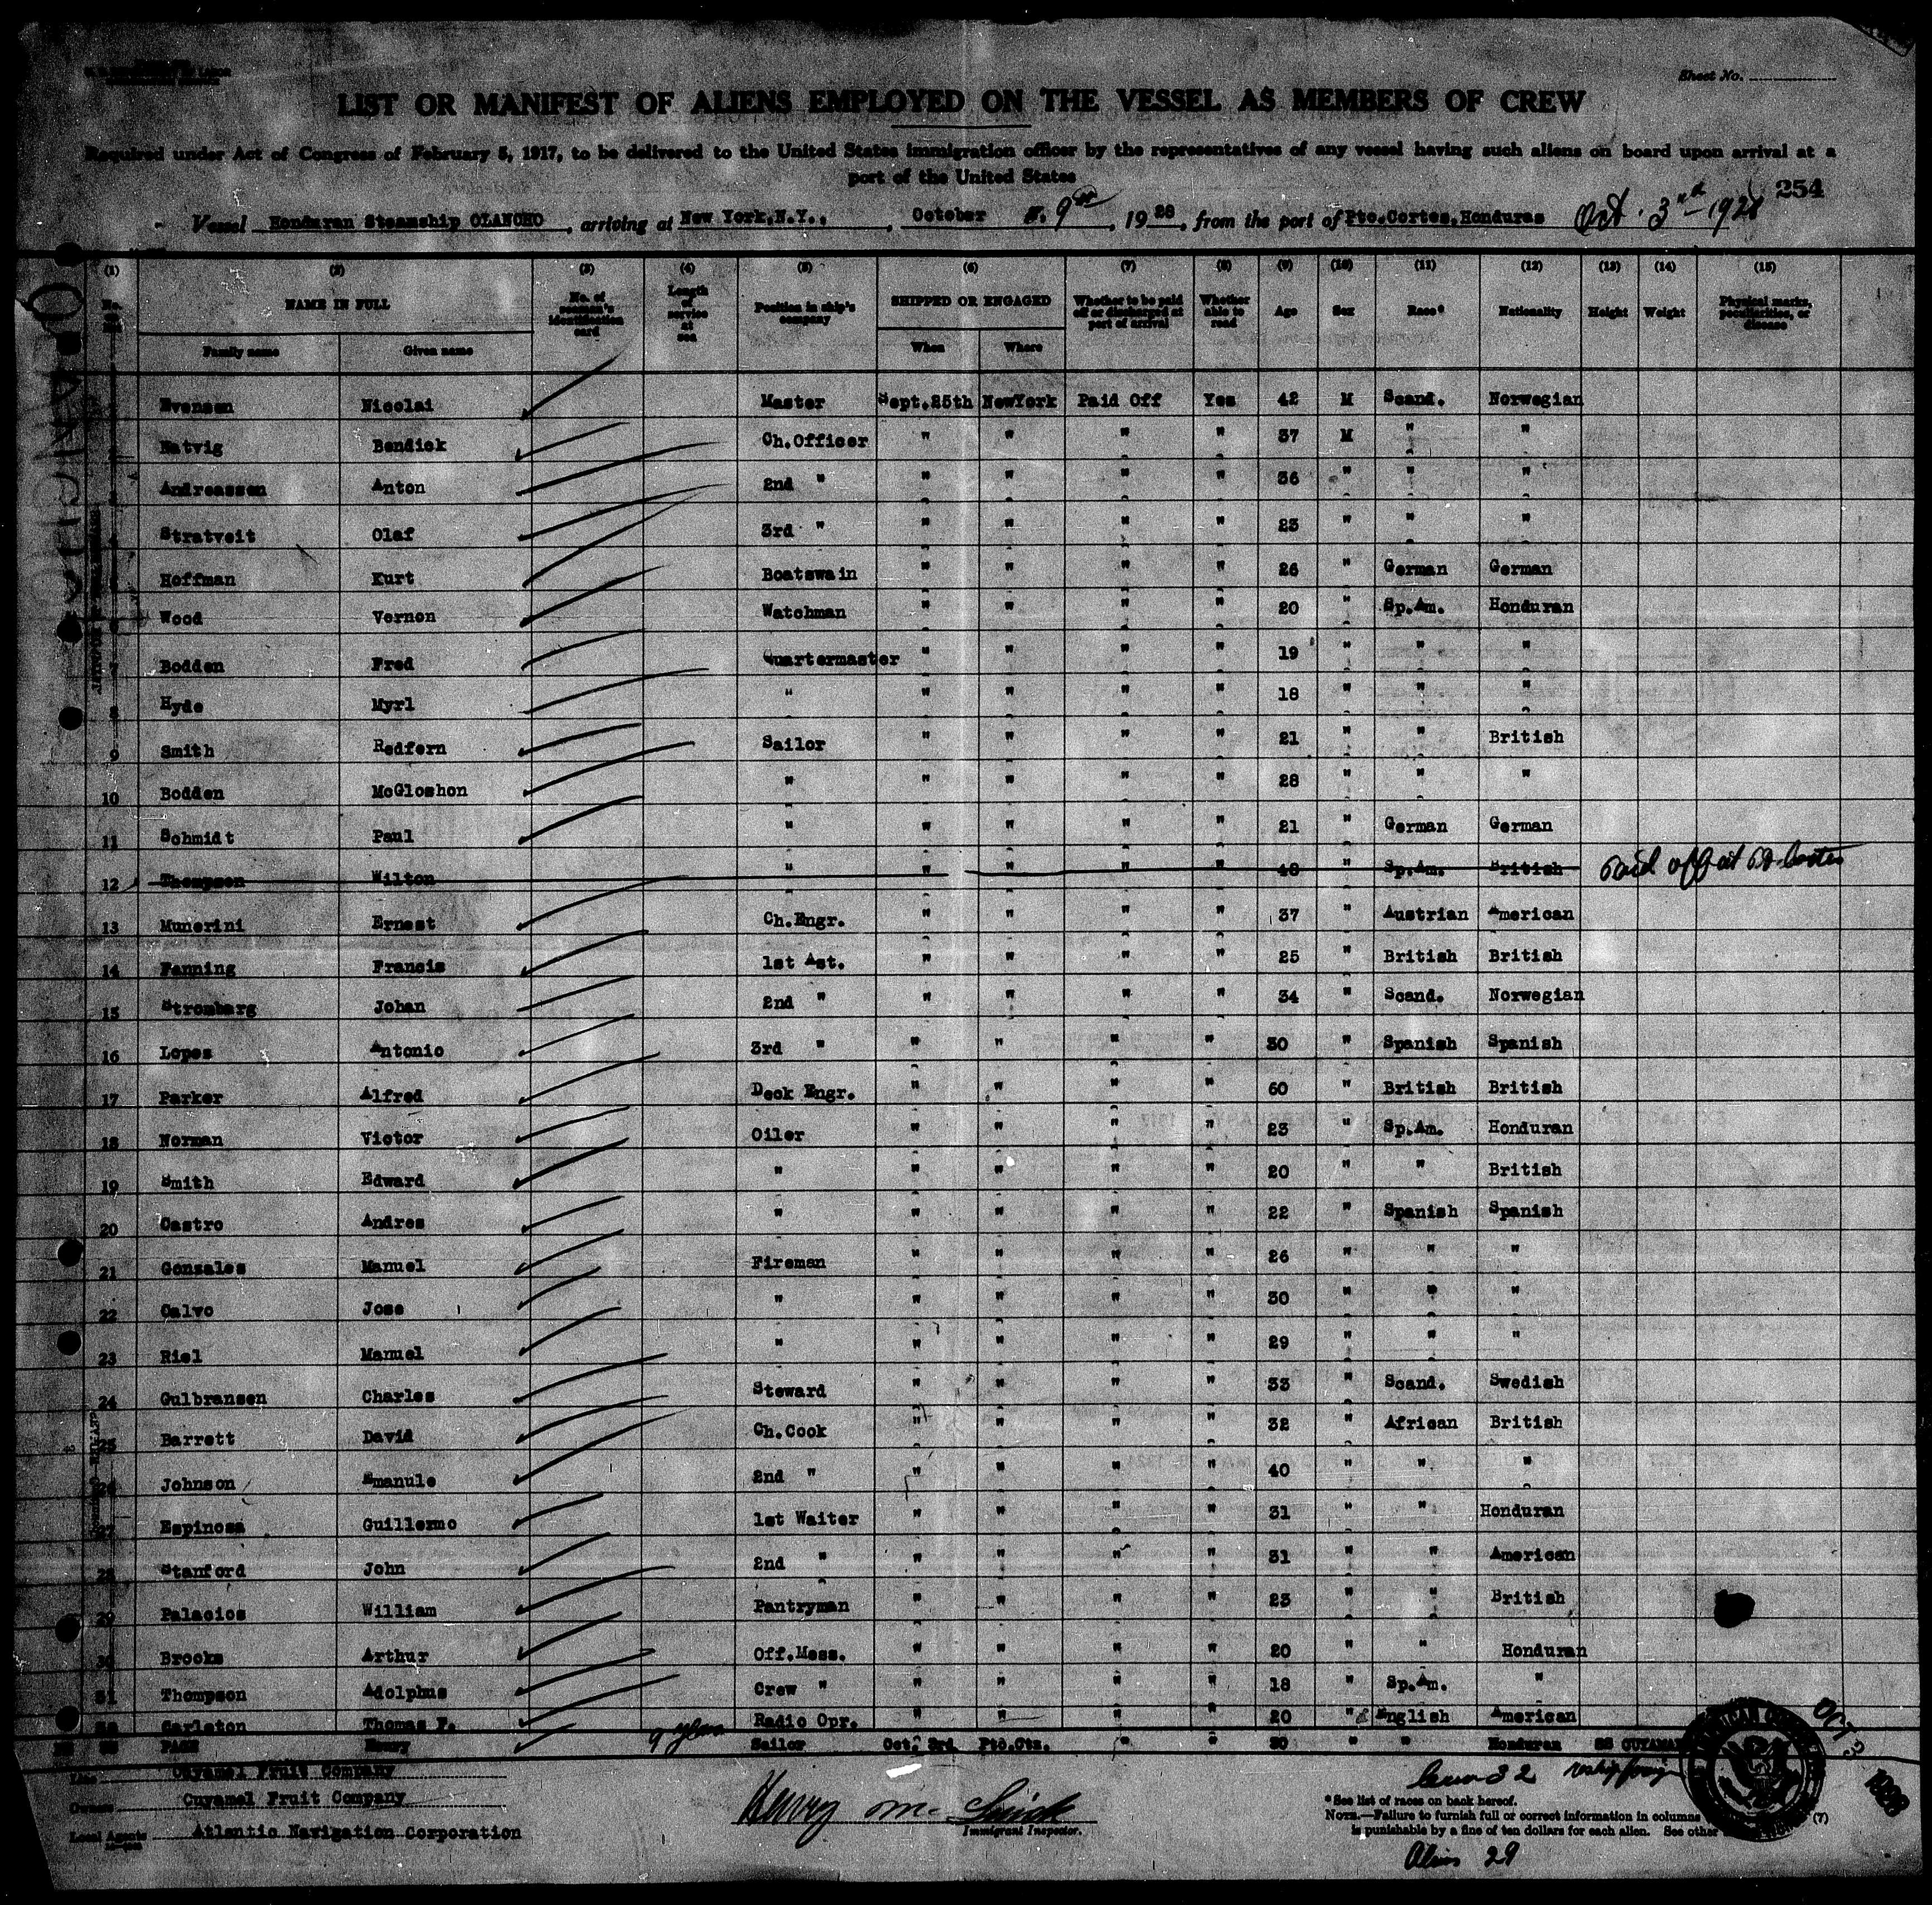 Sheet No.
LIST OR MANIFEST OF ALIENS EMPLOYED ON THE VESSEL AS MEMBERS OF CREW
Required under Act of Congress of February 5, 1917, to be delivered to the United States immigration officer by the representatives of any vessel having such aliens on board upon arrival at a
port of the United States
254
Vessel Honduran Steamship OLANCHO, arriving at New York, N.Y., October 9th, 1928, from the port of Pto.Cortes, Honduras Oct. 3rd-1928
(1) (2) (3) (4) (5) (6) (7) (8) (9) (10) (11) (12) (13) (14) (15)
No. on list NAME IN FULL No. of seaman's identification card Length of service at sea Position in ship's company SHIPPED OR ENGAGED Whether to be paid off or discharged at port of arrival Whether able to read Age Sex Race* Nationality Height Weight Physical marks, peculiarities, or disease
Family name Given name When Where
Evensen Nicolai Master Sept.25th NewYork Paid Off Yes 42 M Scand. Norwegian
Natvig Bendick Ch.Officer " " " " 37 M " "
3 Andreassen Anton 2nd " " " " " 36 " " "
4 Stratveit Olaf 3rd " " " " " 23 " " "
5 Hoffman Kurt Boatswain " " " " 26 " German German
6 Wood Vernon Watchman " " " " 20 " Sp.Am. Honduran
7 Bodden Fred Quartermaster " " " " 19 " " "
8 Hyde Myrl " " " " " 18 " " "
9 Smith Redfern Sailor " " " " 21 " " British
10 Bodden McGloshon " " " " " 28 " " "
11 Schmidt Paul " " " " " 21 " German German
12 Thompson Wilton " " " " " 48 " Sp.Am. British Paid off at
13 Munerini Ernest Ch.Engr. " " " " 37 " Austrian American
14 Fanning Francis 1st Ast. " " " " 25 " British British
15 Stromberg Johan 2nd " " " " " 34 " Scand. Norwegian
16 Lopes Antonio 3rd " " " " " 30 " Spanish Spanish
17 Parker Alfred Deck Engr. " " " " 60 " British British
18 Norman Victor Oiler " " " " 23 " Sp.Am. Honduran
19 Smith Edward " " " " " 20 " " British
20 Castro Andres " " " " " 22 " Spanish Spanish
21 Gonzales Manuel Fireman " " " " 26 " " "
22 Calvo Jose " " " " " 30 " " "
23 Riel Manuel " " " " " 29 " " "
24 Gulbransen Charles Steward " " " " 33 " Scand. Swedish
25 Barrett David Ch.Cook " " " " 32 " African British
26 Johnson Emanule 2nd " " " " " 40 " " "
27 Espinosa Guillermo 1st Waiter " " " " 31 " " Honduran
28 Stanford John 2nd " " " " " 31 " " American
29 Palacios William Pantryman " " " " 23 " " British
30 Brooks Arthur Off.Mess. " " " " 20 " " Honduran
31 Thompson Adolphus Crew " " " " " 18 " Sp.Am. "
32 Carleton Thomas F. Radio Opr. " " " " 20 " English American
33 PAGE Henry 9 years Sailor Oct. 3rd Pto.Ctz. " " 30 " " Honduran SS CUYAMEL
Line Cuyamel Fruit Company
Owners Cuyamel Fruit Company
Local Agents Atlantic Navigation Corporation
Immigrant Inspector.
Crew 32
*See list of races on back hereof.
NOTE.—Failure to furnish full or correct information in columns (7)
is punishable by a fine of ten dollars for each alien. See other
Aliens 29
OCT 3 1928
OLANCHO